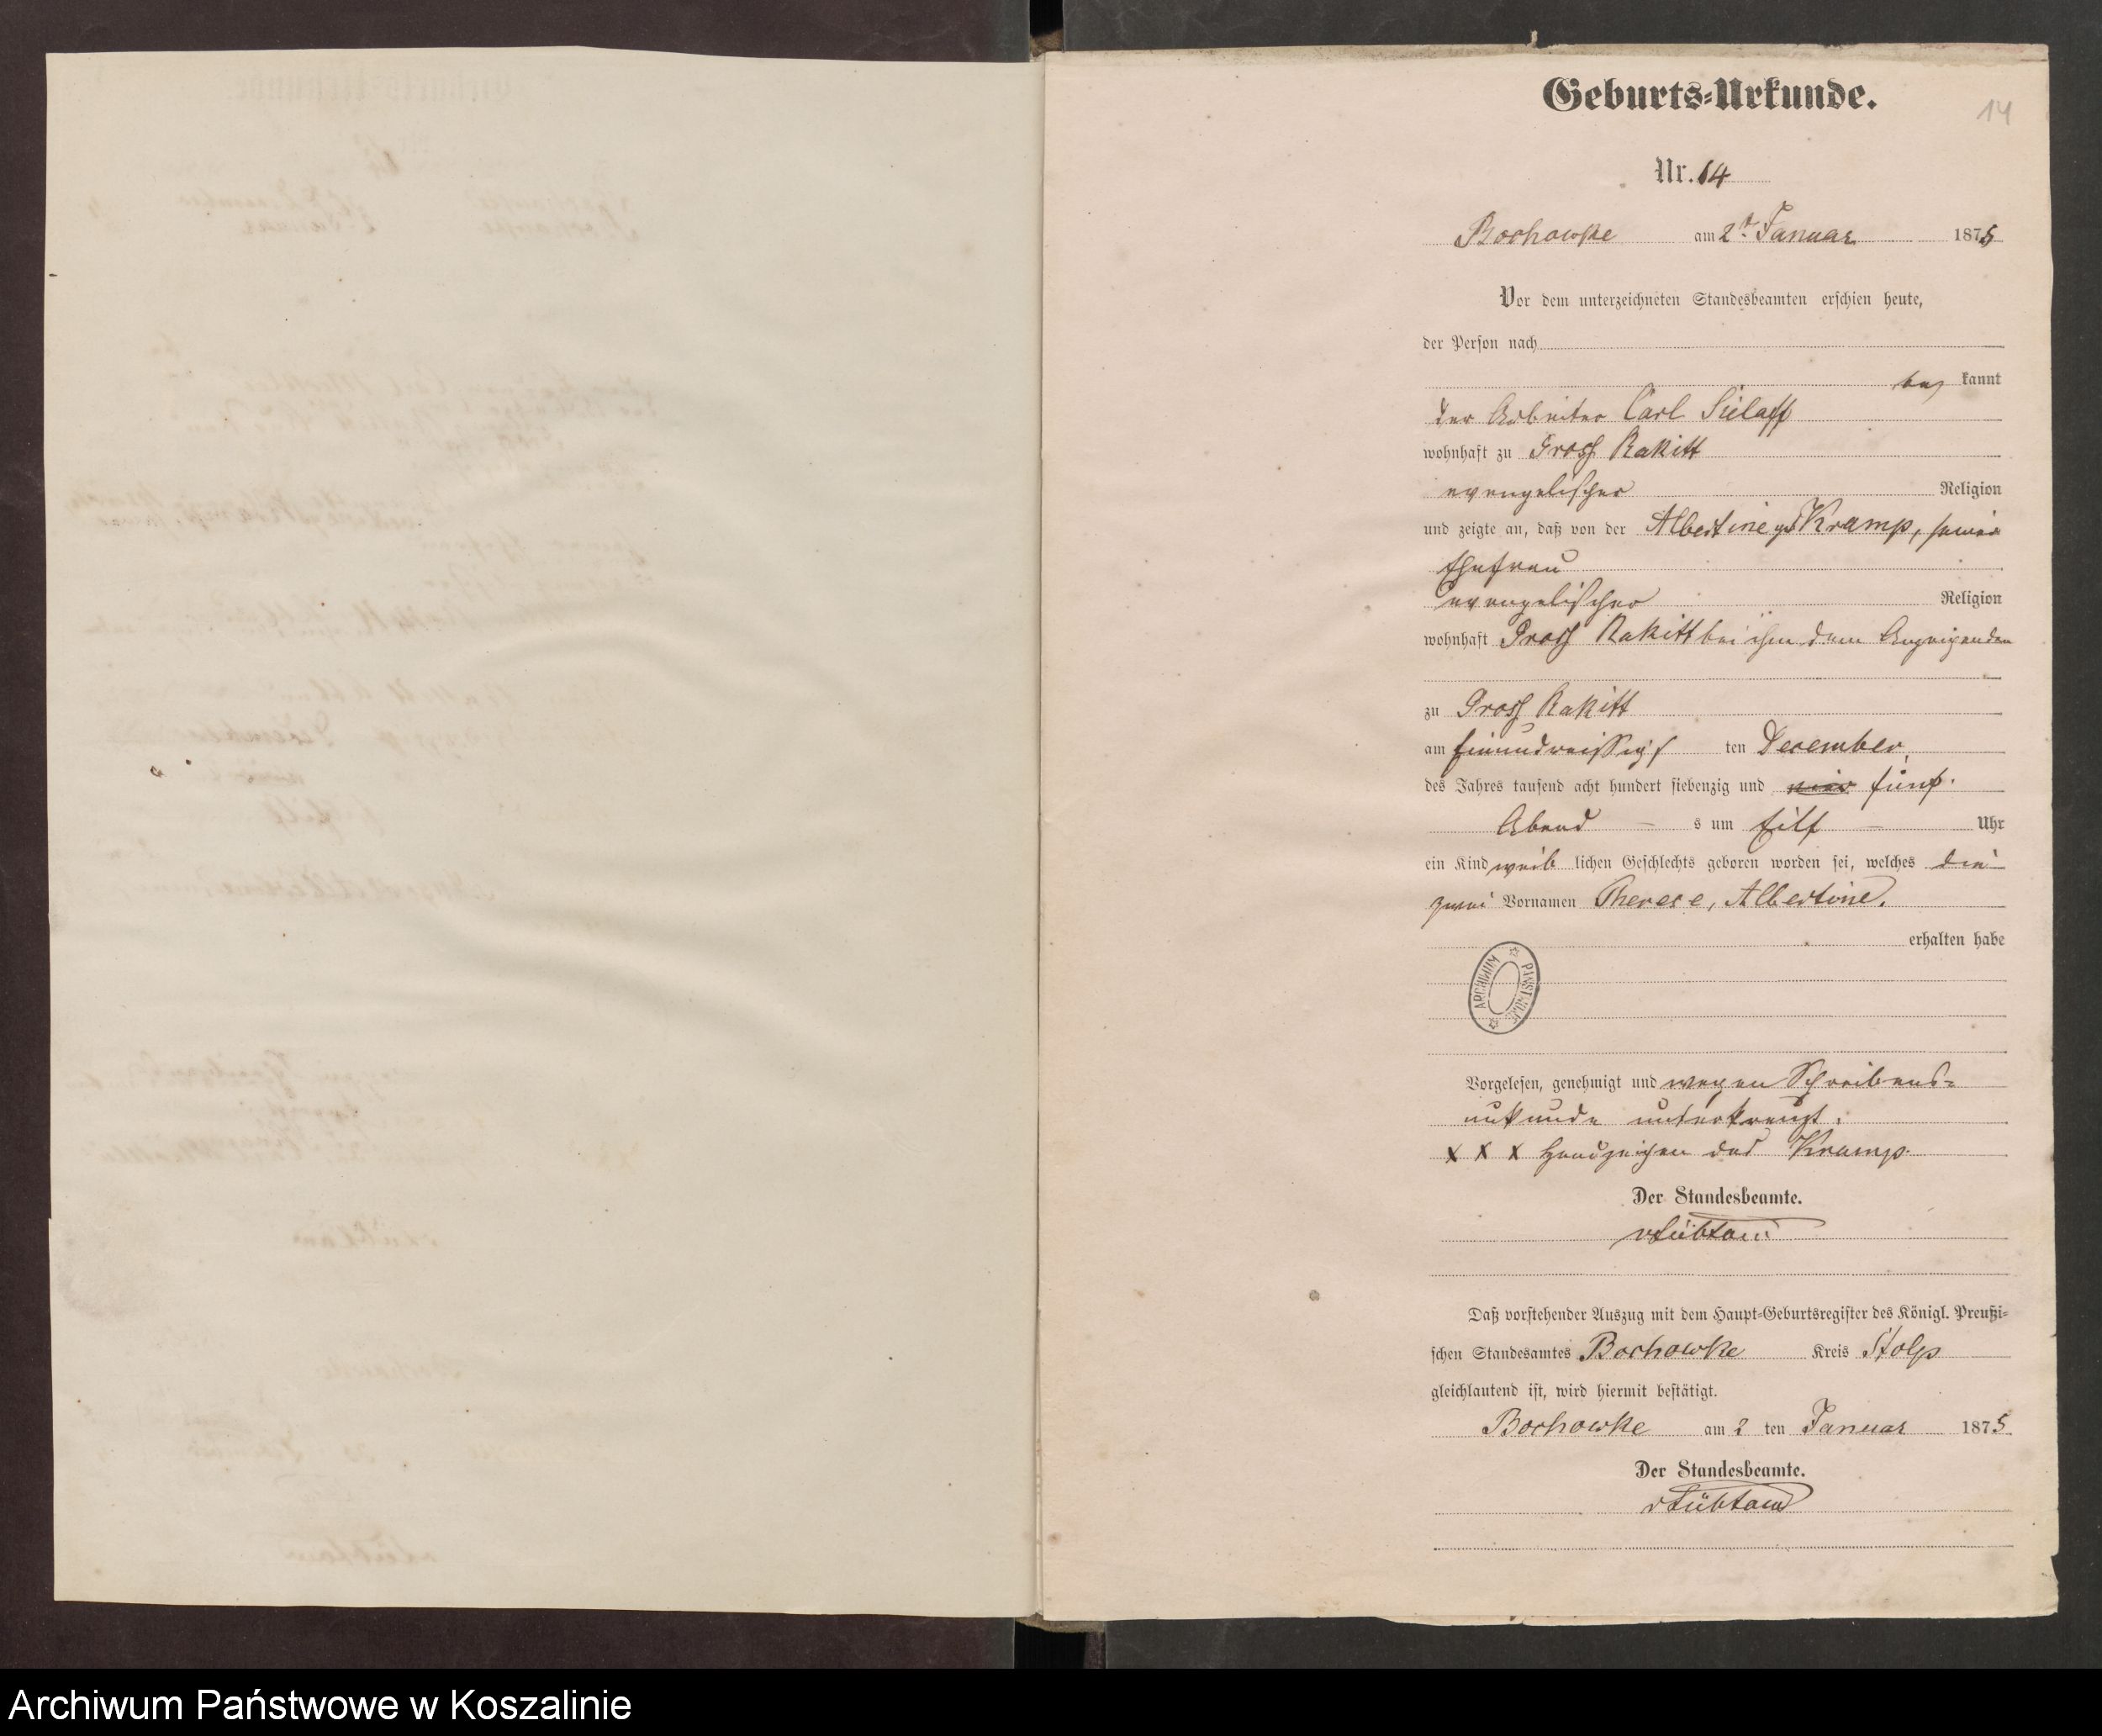 Geburts-Urkunde.
14
Nr. 14
Borkowke am 2t Januar 1875
Vor dem unterzeichneten Standesbeamten erschien heute,
der Person nach
be kannt
der Arbeiter Carl Sielaff
wohnhaft zu Gross Rakitt
evangelischer Religion
und zeigte an, daß von der Albertine geb Kramp, seiner
Ehefrau
evangelischer Religion
wohnhaft Gross Rakitt bei ihm dem Anzeigenden
zu Gross Rakitt
am einunddreissigs ten December
des Jahres tausend acht hundert siebenzig und vier fünf.
Abend s um Eilf Uhr
ein Kind weib lichen Geschlechts geboren worden sei, welches die
zwei Vornamen Therese, Albertine.
erhalten habe
ARCHIWUM PAŃSTWOWE
Vorgelesen, genehmigt und wegen Schreibens-
unkunde unterkreuzt.
x x x Handzeichen des Kramp.
Der Standesbeamte.
Daß vorstehender Auszug mit dem Haupt-Geburtsregister des Königl. Preußi-
schen Standesamtes Borkowke Kreis Stolp
gleichlautend ist, wird hiermit bestätigt.
Borkowke am 2 ten Januar 1875
Der Standesbeamte.
Archiwum Państwowe w Koszalinie